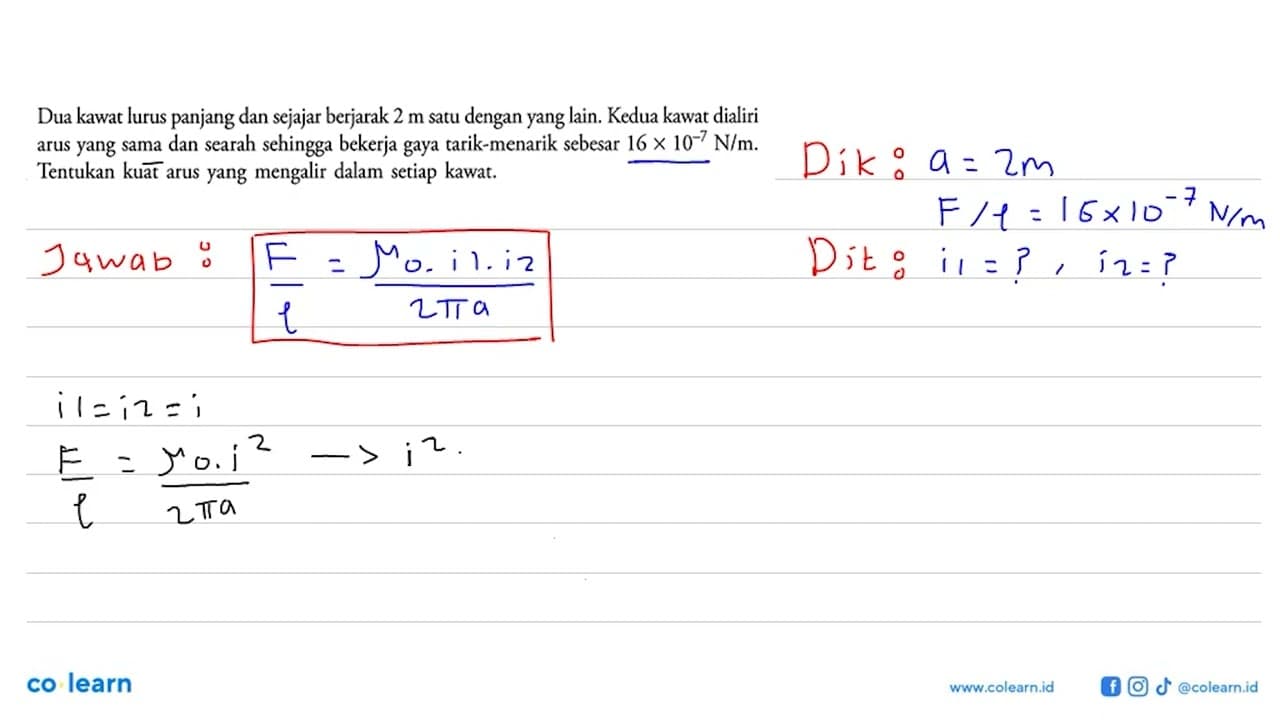 Dua kawat lurus panjang dan sejajar berjarak 2 m satu dengan yang lain. Kedua kawat dialiri
arus yang sama dan searah sehingga bekerja gaya tarik-menarik sebesar 16 × 10⁻⁷ N/m.
Tentukan kuat arus yang mengalir dalam setiap kawat.
Dik : a = 2m
F/ℓ = 16×10⁻⁷ N/m
Dit : i1 = ? , i2 = ?
Jawab : F/ℓ = μo. i1. i2 / 2πa
i1 = i2 = i
F/ℓ = μo. i² / 2πa —> i².
co learn
www.colearn.id
@colearn.id